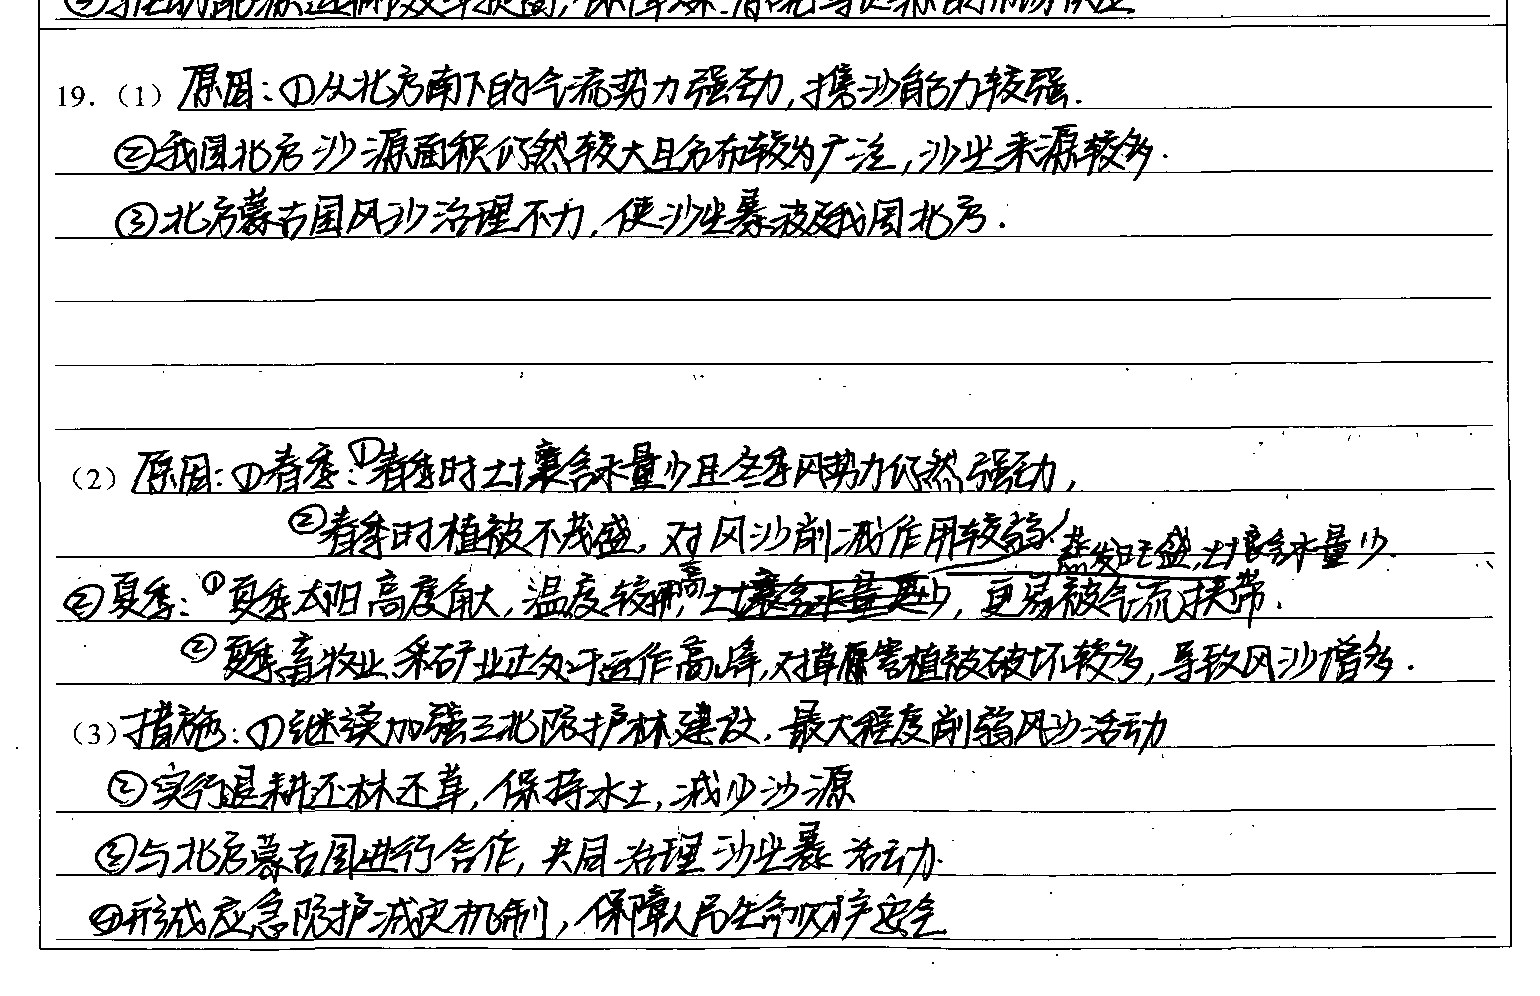 19.（1）原因：①从北方南下的气流势力强劲，携沙能力较强.
②我国北方沙源面积仍然较大且分布较为广泛，沙尘来源较多.
③北方蒙古国风沙治理不力，使沙尘暴波及我国北方.
（2）原因：①春季：①春季时土壤含水量少且冬季风势力仍然强劲，
②春季时植被不茂盛，对风沙削减作用较弱.
蒸发旺盛，土壤含水量少.
②夏季：①夏季太阳高度角大，温度较高，更易被气流挟带.
②夏季畜牧业、采矿业正处于运作高峰，对草原等植被破坏较多，导致风沙增多.
（3）措施：①继续加强三北防护林建设，最大程度削弱风沙活动
②实行退耕还林还草，保持水土，减少沙源
③与北方蒙古国进行合作，共同治理沙尘暴活动.
④形成应急防护减灾机制，保障人民生命财产安全